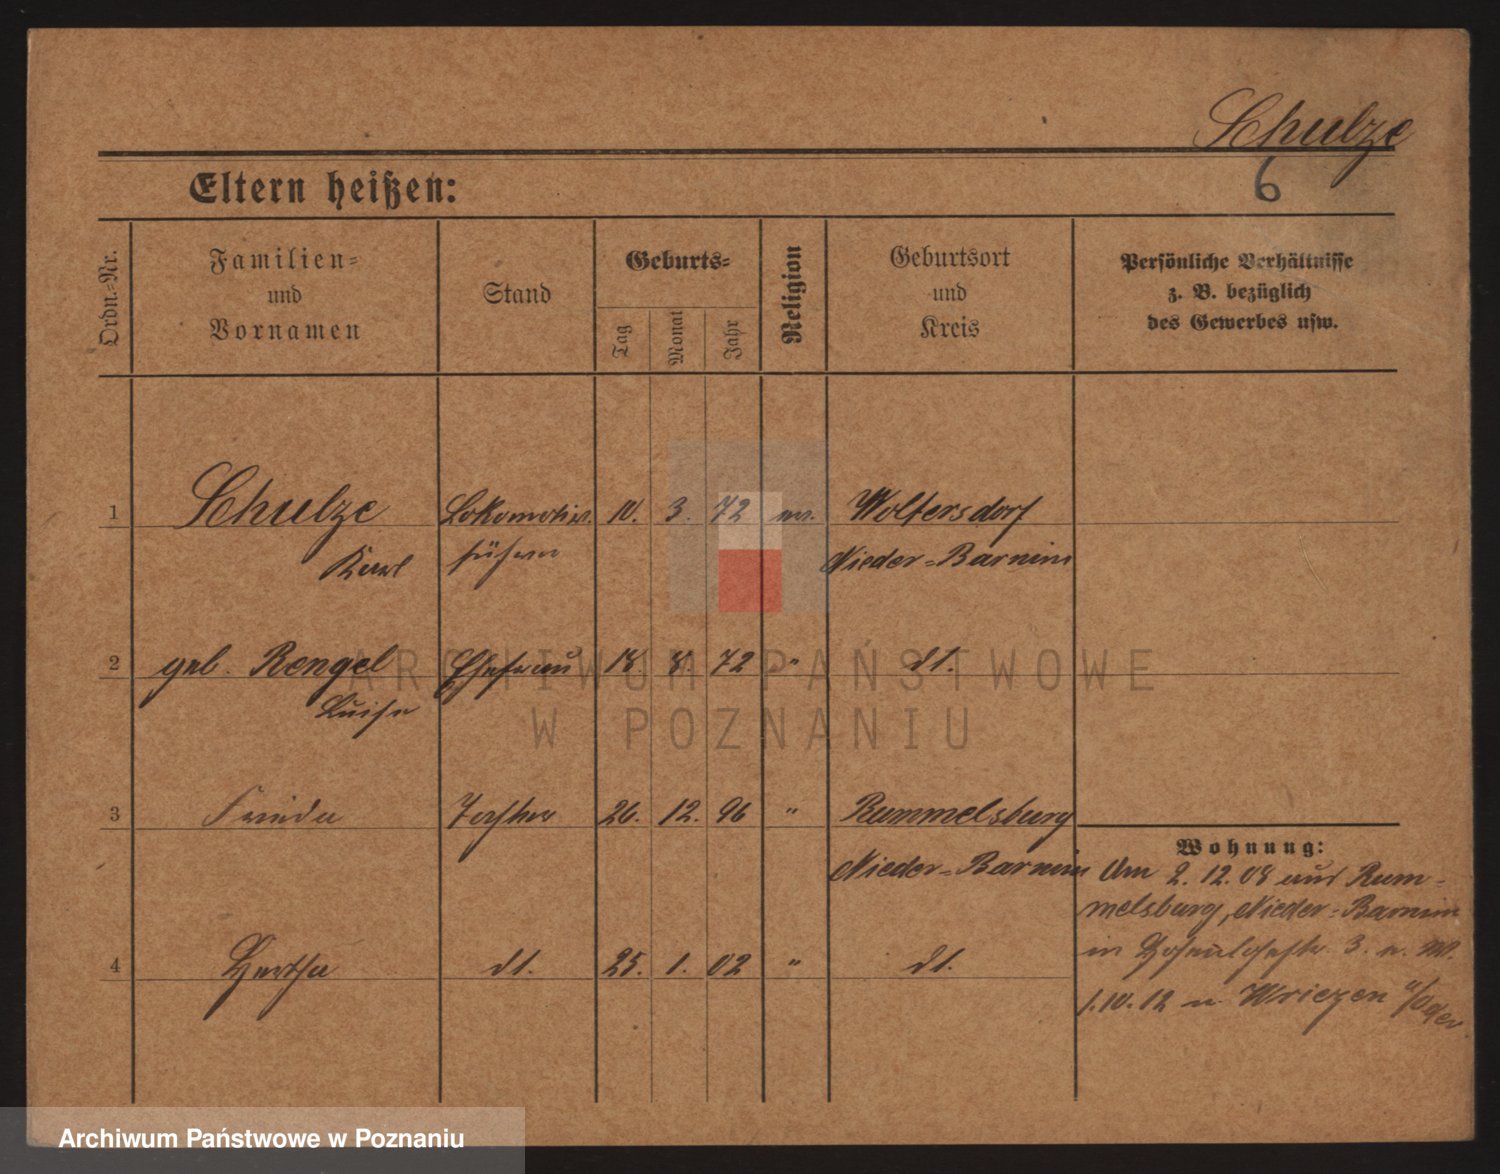 Schulze
6
Eltern heißen:
Ordn.-Nr.
Familien-
und
Vornamen
Stand
Geburts-
Tag
Monat
Jahr
Religion
Geburtsort
und
Kreis
Persönliche Verhältnisse
z. B. bezüglich
des Gewerbes usw.
1 Schulze Lokomotiv. 10. 3. 72 ev. Woltersdorf
Karl führer Nieder-Barnim
2 geb. Rengel Ehefrau 18 8. 72 " dt.
Luise
3 Frieda Tochter 26. 12. 96 " Rummelsburg
Nieder-Barnim
4 Hertha dt. 25. 1. 02 " dt.
Wohnung:
Am 2. 12. 08 aus Rum-
melsburg, Nieder-Barnim
in 3.
1.10.12 n. Wriezen a/Oder
ARCHIWUM PAŃSTWOWE
W POZNANIU
Archiwum Państwowe w Poznaniu